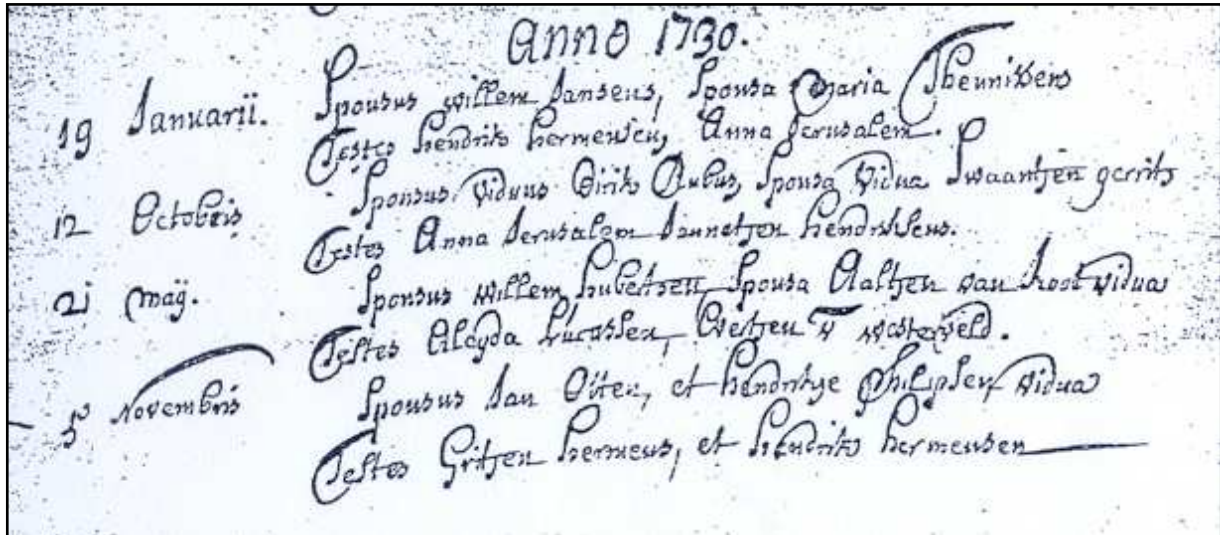 Anno 1730.
19 Januarii. Sponsus willem Jansens, Sponsa Maria Theunissens
Testes hendrik hermensen, Anna Jerusalem.
12 Octobris Sponsus Viduus Dirik Sponsa Vidua Swaantjen gerrits
Testes Anna Jerusalem Jannetjen hendriksens.
21 maÿ. Sponsus willem hubertsen Sponsa Aaltjen van Vidua
Testes Aleyda Lucassen, Evertjen v westerveld.
5 Novembris Sponsus Jan Otten, et hendrikje Philipsen Vidua
Testes Gritjen hermens, et hendrik hermensen